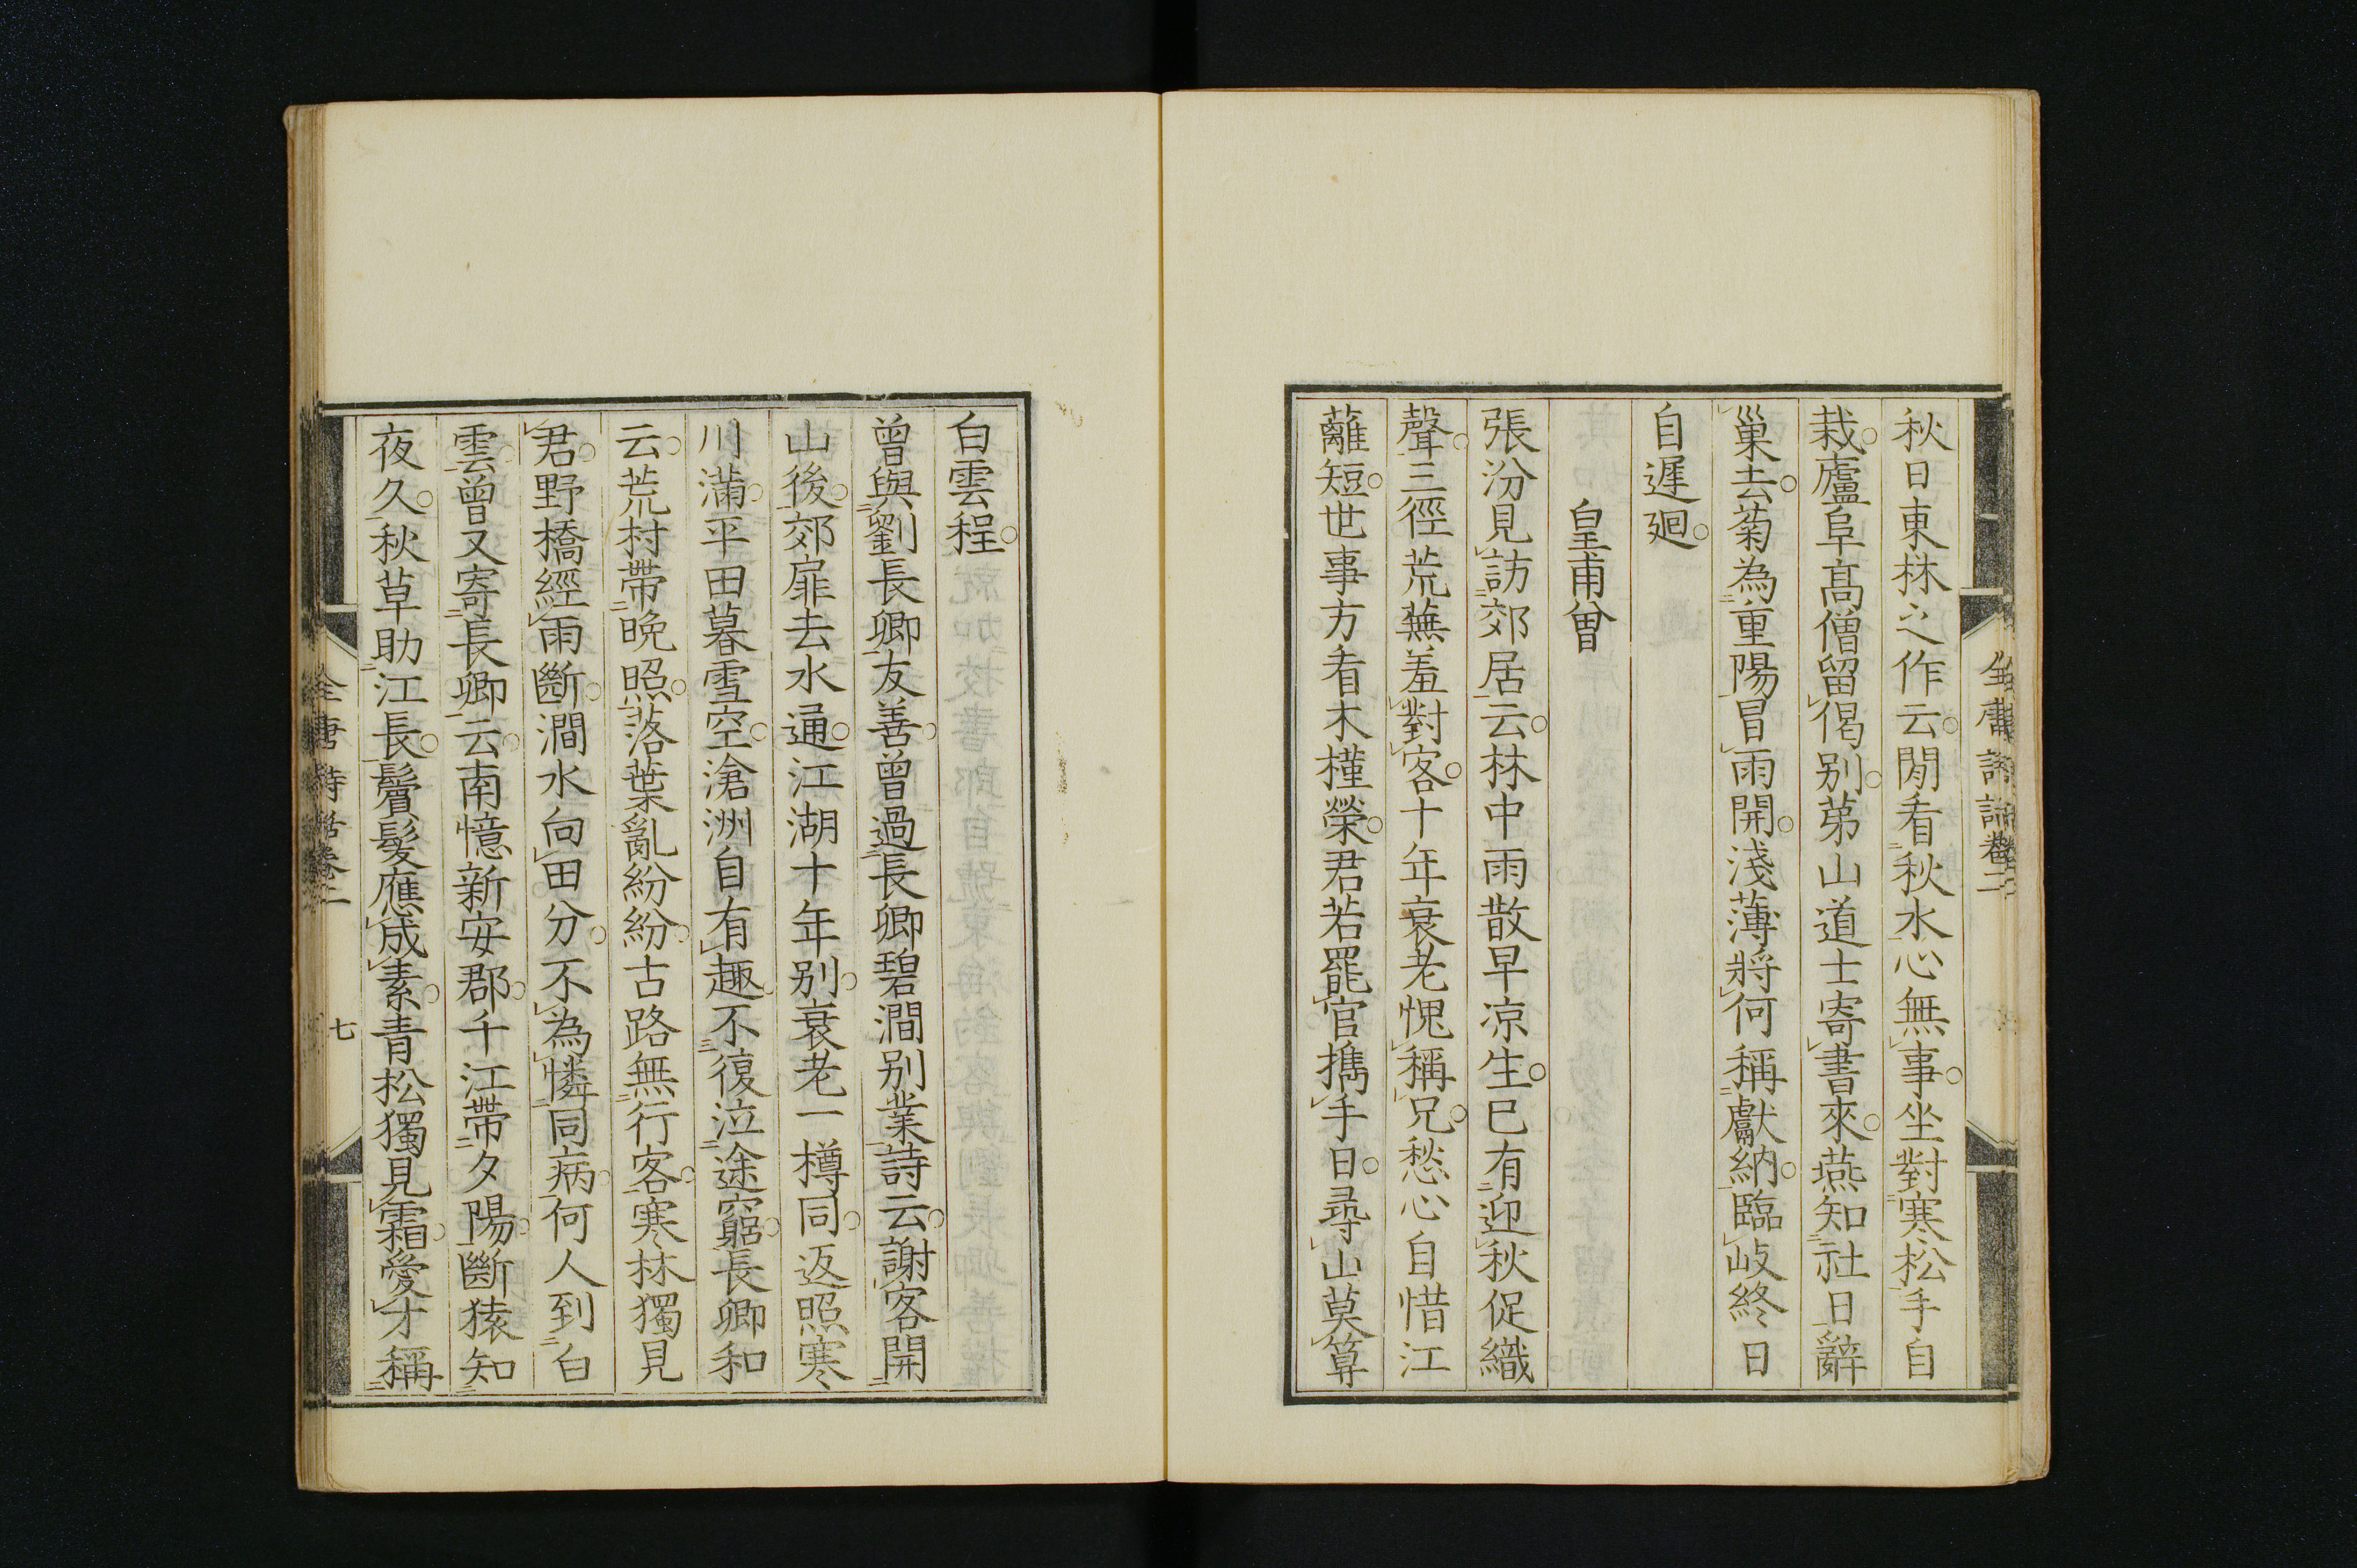 秋日東林之作云閒看秋水心無事坐對寒松手自
栽廬阜髙僧留偈别苐山道士寄書來燕知社日辭
巢去菊為重陽冒雨開淺薄將何稱獻納臨岐終日
自遲廻
皇甫曾
張汾見訪郊居云林中雨散早凉生已有迎秋促織
聲三徑荒蕪羞對客十年衰老愧稱兄愁心自惜江
蘺短世事方看木槿榮君若罷官擕手日尋山莫算
白雲程
曾與劉長卿友善曾過長卿碧澗别業詩云謝客開
山後郊扉去水通江湖十年别衰老一樽同返照寒
川滿平田暮雪空滄洲自有趣不復泣途窮長卿和
云荒村帶晚照落葉亂紛紛古路無行客寒林獨見
君野橋經雨斷澗水向田分不為憐同病何人到白
雲曾又寄長卿云南憶新安郡千江帶夕陽斷猿知
夜久秋草助江長鬢髮應成素青松獨見霜愛才稱
全唐詩話卷二
七